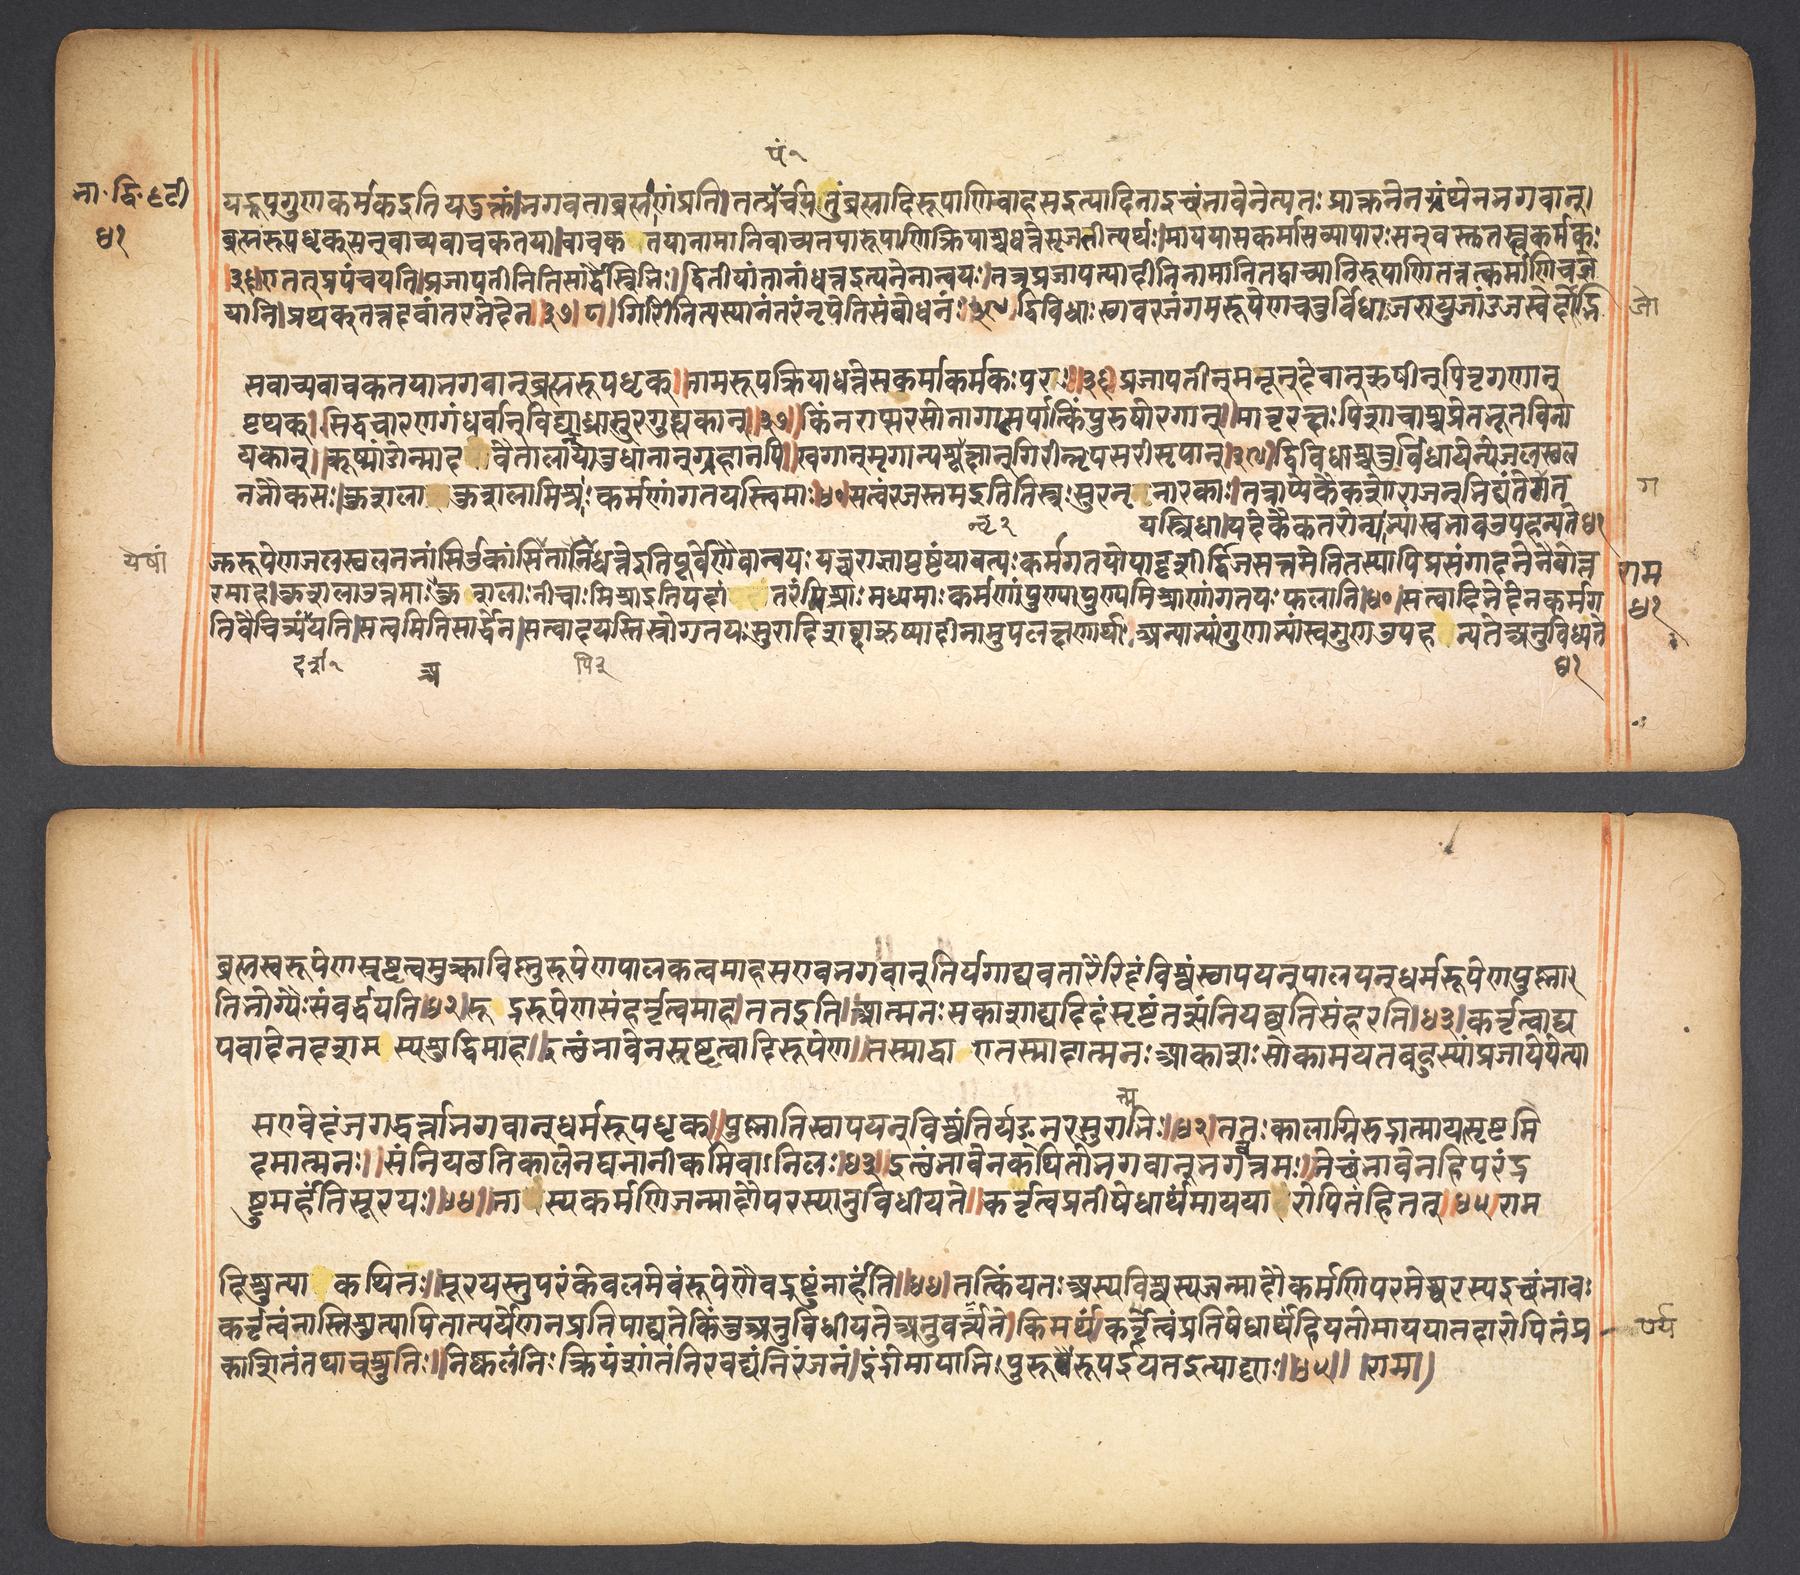 पं १
भा. द्वि. टी
४१
यद्रूपगुणकर्मकइतियदुक्तं।भगवताब्रह्माणंप्रति।तत्प्रपंचयितुंब्रह्मादिरूपाणिस्वाहसइत्यादिनाइत्थंभावेनेत्यतः प्राक्तनेनग्रंथेनभगवान्।
ब्रह्मरूपधृक्सन्वाच्यवाचकतया।वाचक तयानामानिवाच्यतयारूपाणिक्रियाश्चधत्तेसृजतीत्यर्थः।माययासकर्मासव्यापारः सन्वस्तुतस्त्वकर्मकः
।३६।एतत्प्रपंचयति।प्रजापतीनितिसार्द्धैस्त्रिभिः।द्वितीयांतानांधत्तइत्यनेनान्वयः।तत्रप्रजापत्यादीनिनामानितद्वाच्यानिरूपाणितत्तत्कर्माणिचज्ञे
यानि।प्रथक्तत्तदवांतरभेदेन।३७।८।गिरिनित्यस्यानंतरंनृपेतिसंबोधनं।३९।द्विविधाः स्थावरजंगमरूपेणचतुर्विधाजरायुजांडजस्वेदोद्भि
जो
सवाच्यवाचकतयाभगवान्ब्रह्मरूपधृक्।नामरूपक्रियाधत्तेसकर्माकर्मकः परः।३६।प्रजापतीन्मनून्देवान्ऋषीन्पितृगणान्
पृथक्।सिद्धचारणगंधर्वान्विद्याध्रासुरगुह्यकान्।३७।किंनराप्सरसोनागान्सर्पान्किंपुरुषोरगान्।मातृरक्षः पिशाचाश्चप्रेतभूतविना
यकान्।कूष्मांडोन्माद वेतालान्यातुधानान्ग्रहानपि।खगान्मृगान्पशून्वृक्षान्गिरीन्नृपसरीसृपान्।३९।द्विविधाश्चतुर्विधायेन्येजलस्थल
नभौकसः।कुशला कुशलामिश्राः कर्मणांगतयस्त्विमाः।४०।सत्वंरजस्तमइतितिस्रः सुरनृ नारकाः।तत्राप्येकैकशोराजन्भिद्यंतेगत
ग
यस्त्रिधा।यदैकैकतरोन्याभ्यांस्वभावउपहन्यते४१
नृ २
येषां
ज्जरूपेणजलस्थलनभांसिओकांसियेषांतान्धत्तेइतिपूर्वेणैवान्वयः यच्चराज्ञापृष्टंयावत्यः कर्मगतयोयादृशीर्द्विजसत्तमेतितस्यापिप्रसंगादनेनैवोत्त
राम
४१
रमाह।कुशलाउत्तमाः कुशलाः नीचाः मिश्राइतिपदां तरं।मिश्राः मध्यमाः कर्मणांपुण्यापुण्यमिश्राणांगतयः फलानि।४०।सत्वादिभेदेनकर्मग
तिवैचित्र्यंदर्शयति।सत्वमितिसार्द्धेन।सत्वादयस्तिस्रोगतयः सुरादिशब्दाऋष्यादीनामुपलक्षणार्थाः अन्याभ्यांगुणाभ्यांस्वगुणउपह न्यतेअनुविध्यते
दर्श १
अ
पि ३
४१
ब्रह्मस्वरूपेणस्रष्टृत्वमुक्त्वाविष्णुरूपेणपालकत्वमाहसएवभगवान्तिर्यगाद्यवतारैरिदंविश्वंस्थापयन्पालयन्धर्मरूपेणपुष्णा
तिभोग्यैः संवर्द्धयति।४२।रु द्ररूपेणसंहर्तृत्वमाह।ततइति।आत्मनः सकाशाद्यदिदंसृष्टंतत्संनियच्छतिसंहरति।४३।कर्तृत्वाद्य
पवादेनदशम स्यशुद्धिमाह।इत्थंभावेनस्रष्टृत्वादिरूपेण।तस्माद्वा एतस्मादात्मनः आकाशः सोकामयतबहुस्यांप्रजायेयेत्या
त्म
सएवेदंजगद्धर्त्ताभगवान्धर्मरूपधृक्।पुष्णातिस्थापयन्विश्वंतिर्यङ्नरसुरात्मभिः।४२।ततः कालाग्निरुद्रात्मायत्सृष्टमि
दमात्मनः।संनियच्छतिकालेनघनानीकमिवानिलः।४३।इत्थंभावेनकथितोभगवान्भगवत्तमः।नेत्थंभावेनहिपरंद्र
ष्टुमर्हंतिसूरयः।४४।ना स्यकर्मणिजन्मादौपरस्यानुविधीयते।कर्तृत्वप्रतीषेधार्थंमायया रोपितंहितत्।४५।राम
दिश्रुत्या कथितः।सूरयस्तुपरंकेवलमेवंरूपेणैवद्रष्टुंनार्हंति।४४।तत्किंयतः अस्यविश्वस्यजन्मादौकर्मणिपरमेश्वरस्यइत्थंभावः
कर्तृत्वंनास्तिश्रुत्यापितात्पर्येणनप्रतिपाद्यतेकिंतुअनुविधीयतेअनुवर्ण्यते।किमर्थं।कर्तृत्वंप्रतिषेधार्थंहियतोमाययातदारोपितंप्र
पर्य
काशितंतथाचश्रुतिः।निष्कलंनिः क्रियंशांतंनिरवद्यंनिरंजनं।इंद्रोमायाभिः पुरुरूपईयतइत्याद्याः।४५।राम।